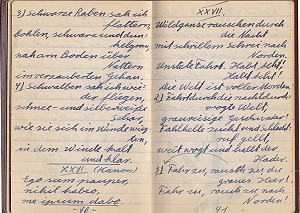 3) schwarze Raben sah ich
flattern,
dohlen, schwarz und dun-
kelgrau,
nah am Boden über
nattern
im verzauberten Gehau.
4) schwalben sah ich wei-
der fliegen,
schnee- und silberweisse
schar,
wie sie sich im Winde wieg-
ten,
in dem Winde kalt
und klar.
XXVI (Kanon)
Ego sum pauper,
nihil habeo,
me ipsum dabo
- 40 -
XXVII
Wildgänse rauschen durch
die Nacht
mit schrillem schrei nach
Norden.
Unstete Fahrt. Habt acht!
Habt acht!
Die Welt ist voller Morden.
2) Fahrt durch die nachtdurch-
wogte Welt,
graureisige Geschwader!
Fahlhelle zuckt und schlacht-
ruf gellt,
weit wogt und hallt der
Hader.
3) Fahr zu, rausch zu du
graues Heer!
Fahr zu, rausch zu nach
Norden!
- 41 -